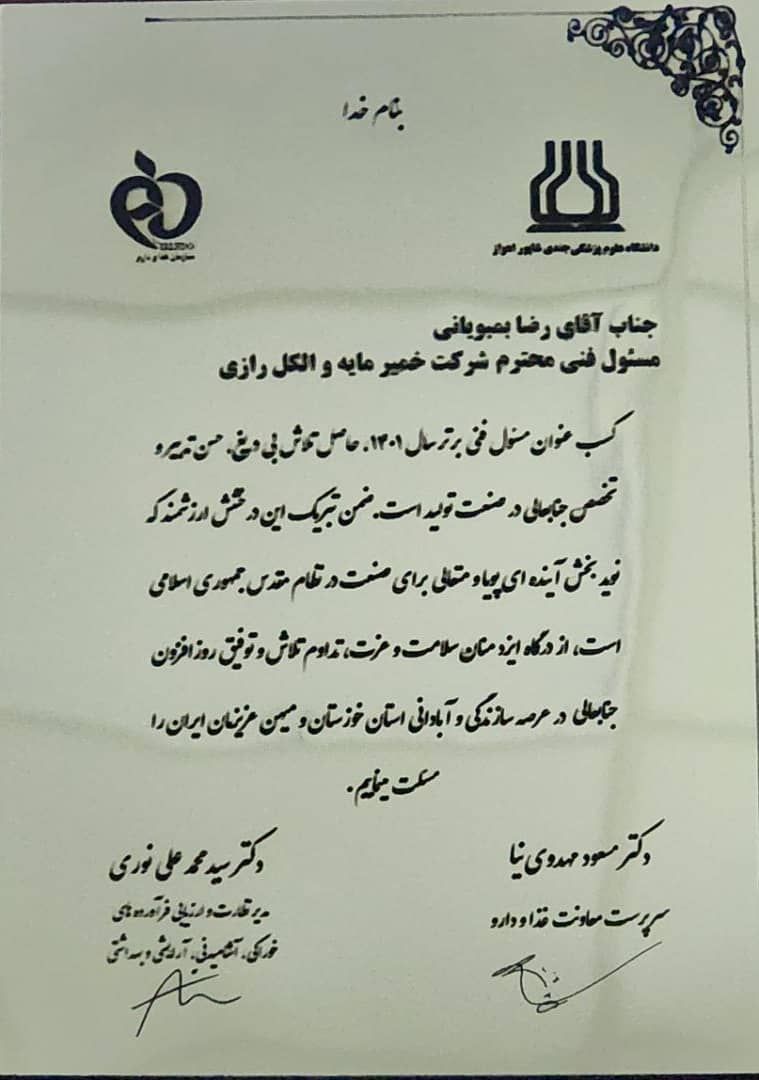 بنام خدا
دانشگاه علوم پزشکی جندی شاپور اهواز
سازمان غذا و دارو
جناب آقای رضا بمبویانی
مسئول فنی محترم شرکت خمیر مایه و الکل رازی
کسب عنوان مسئول فنی برتر سال ۱۴۰۱، حاصل تلاش بی دریغ، حسن تدبیر و
تخصص جنابعالی در صنعت تولید است. ضمن تبریک این درخشش ارزشمند که
نوید بخش آینده ای پویا و متعالی برای صنعت در نظام مقدس جمهوری اسلامی
است، از درگاه ایزد منان سلامت و عزت، تداوم تلاش و توفیق روز افزون
جنابعالی در عرصه سازندگی و آبادانی استان خوزستان و میهن عزیزمان ایران را
مسئلت مینماییم.
دکتر مسعود مهدوی نیا
سرپرست معاونت غذا و دارو
دکتر سید محمد علی نوری
مدیر نظارت و ارزیابی فرآورده های
خوراکی، آشامیدنی، آرایشی و بهداشتی